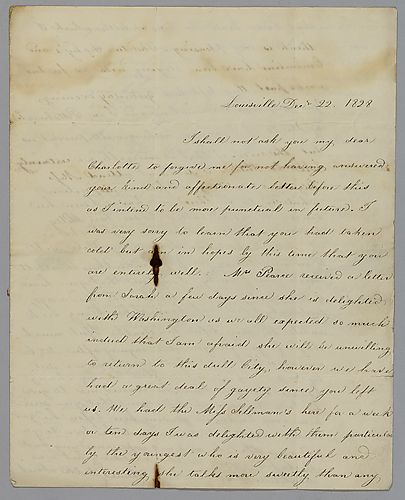 Louisville Dec.r 22. 1828
I shall not ask you my dear
Charlotte to forgive me for not having answered
your kind and affectionate letter before this
as I intend to be more punctual in future. I
was very sorry to learn that you had taken
cold but am in hopes by this time that you
are entirely well. Mrs Pearce received a letter
from Sarah a few days since she is delighted
with Washington as we all expected so much
indeed that I am afraid she will be unwilling
to return to this dull City, however we have
had a great deal of gayety since you left
us. We had the Miss Tillman's here for a week
or ten days I was delighted with them particular
ly the youngest who is very beautiful and
interesting she talks more sweetly than any